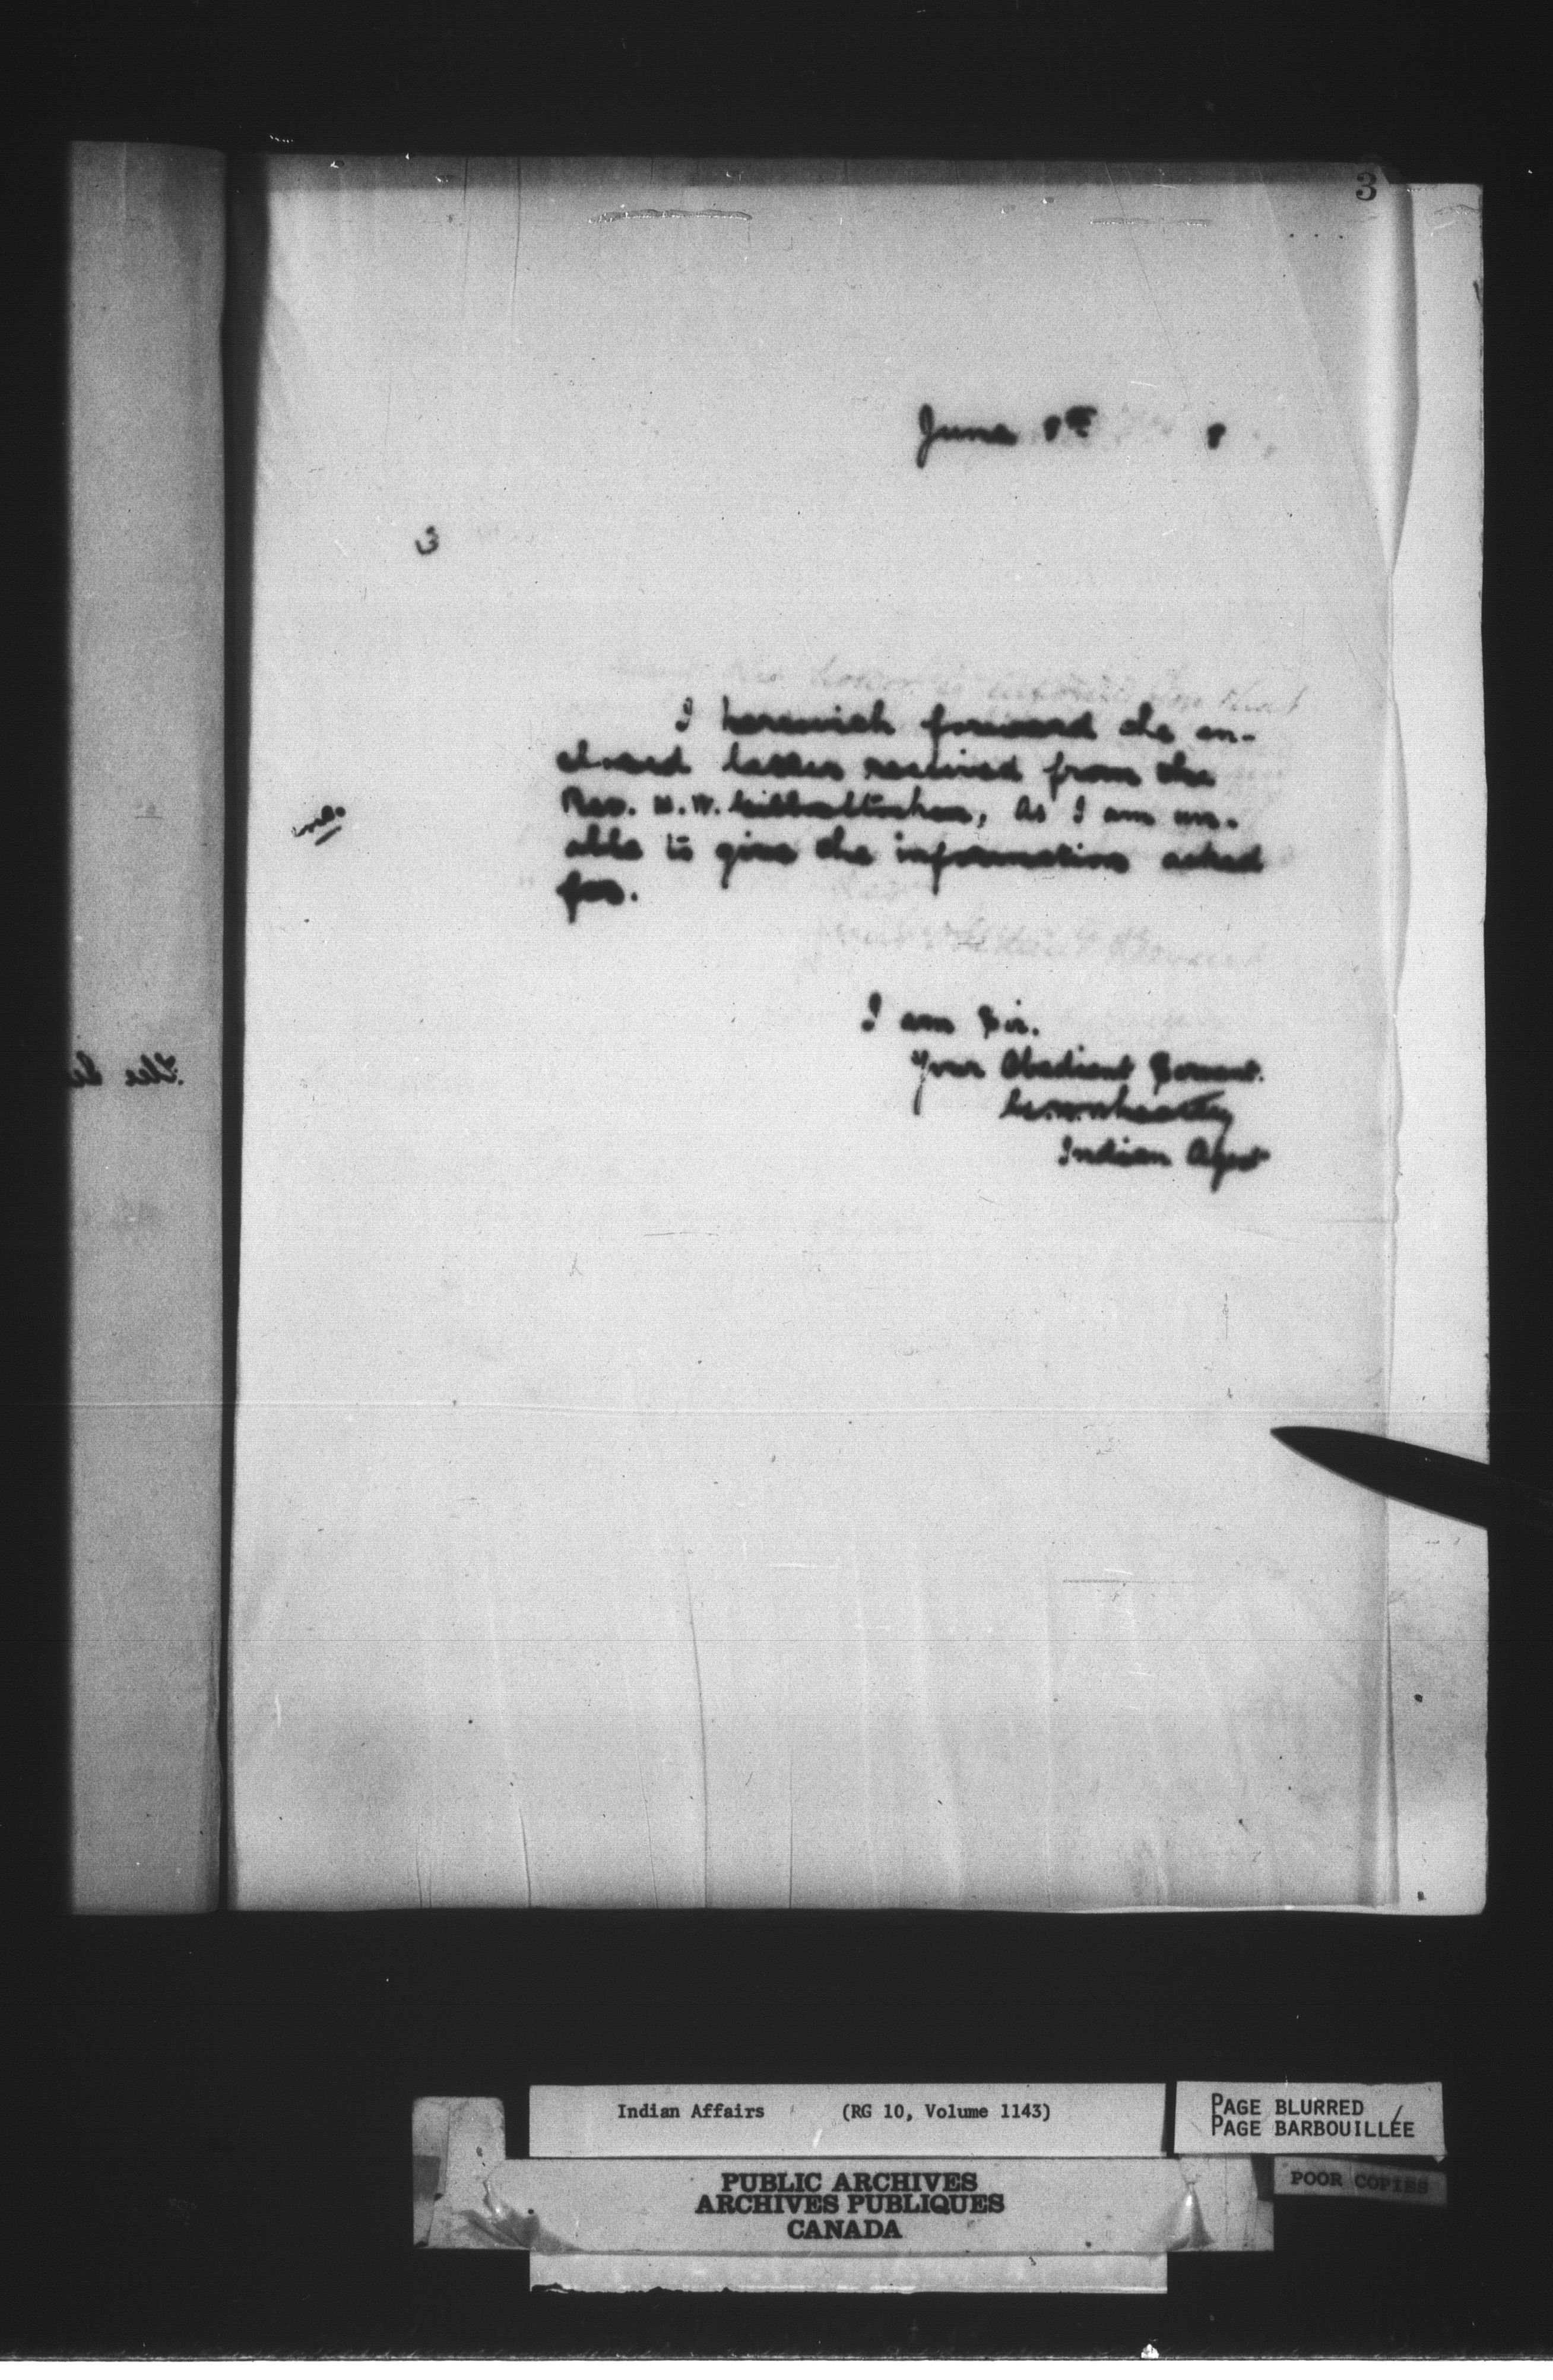 3
June 8th 8
3
I herewith forward the en-
closed letter received from the
Rev. W. W. As I am un-
able to give the information asked
for.
I am Sir.
Your Obedient Servant.
Indian Agent
Indian Affairs (RG 10, Volume 1143)
PAGE BLURRED
PAGE BARBOUILLÉE
POOR COPIES
PUBLIC ARCHIVES
ARCHIVES PUBLIQUES
CANADA